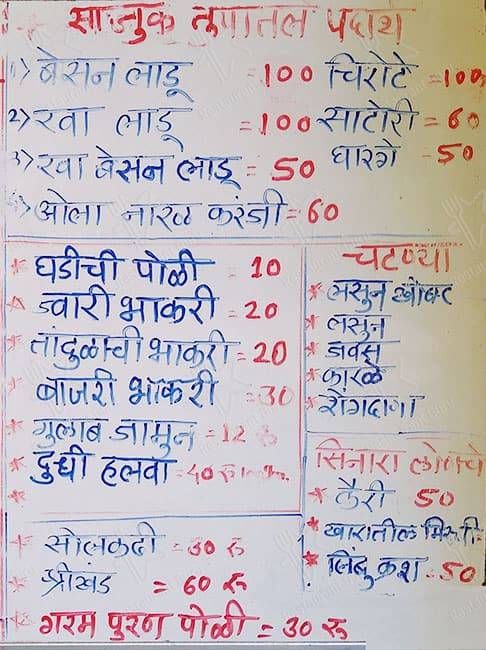 साजुक तुपातले पदार्थ
1) बेसन लाडू = 100
2) रवा लाडू = 100
3) रवा बेसन लाडू = 50
ओला नारळ करंजी = 60
चिरोटे = 100
साटोरी = 60
घारगे - 50
* घडीची पोळी - 10
* ज्वारी भाकरी = 20
* तांदुळाची भाकरी = 20
* बाजरी भाकरी = 30
* गुलाब जामुन = 12 रु
* दुधी हलवा = 40 रु
*
चटण्या
* लसुन खोबर
* लसुन
* जवस
* कारळे
* शेंगदाणा
सिनारा लोणचे
* कैरी 50
* खारातील मिरची
* लिंबु क्रश - 50
* सोलकढी = 30 रु
* श्रीखंड = 60 रु
* गरम पुरण पोळी = 30 रु